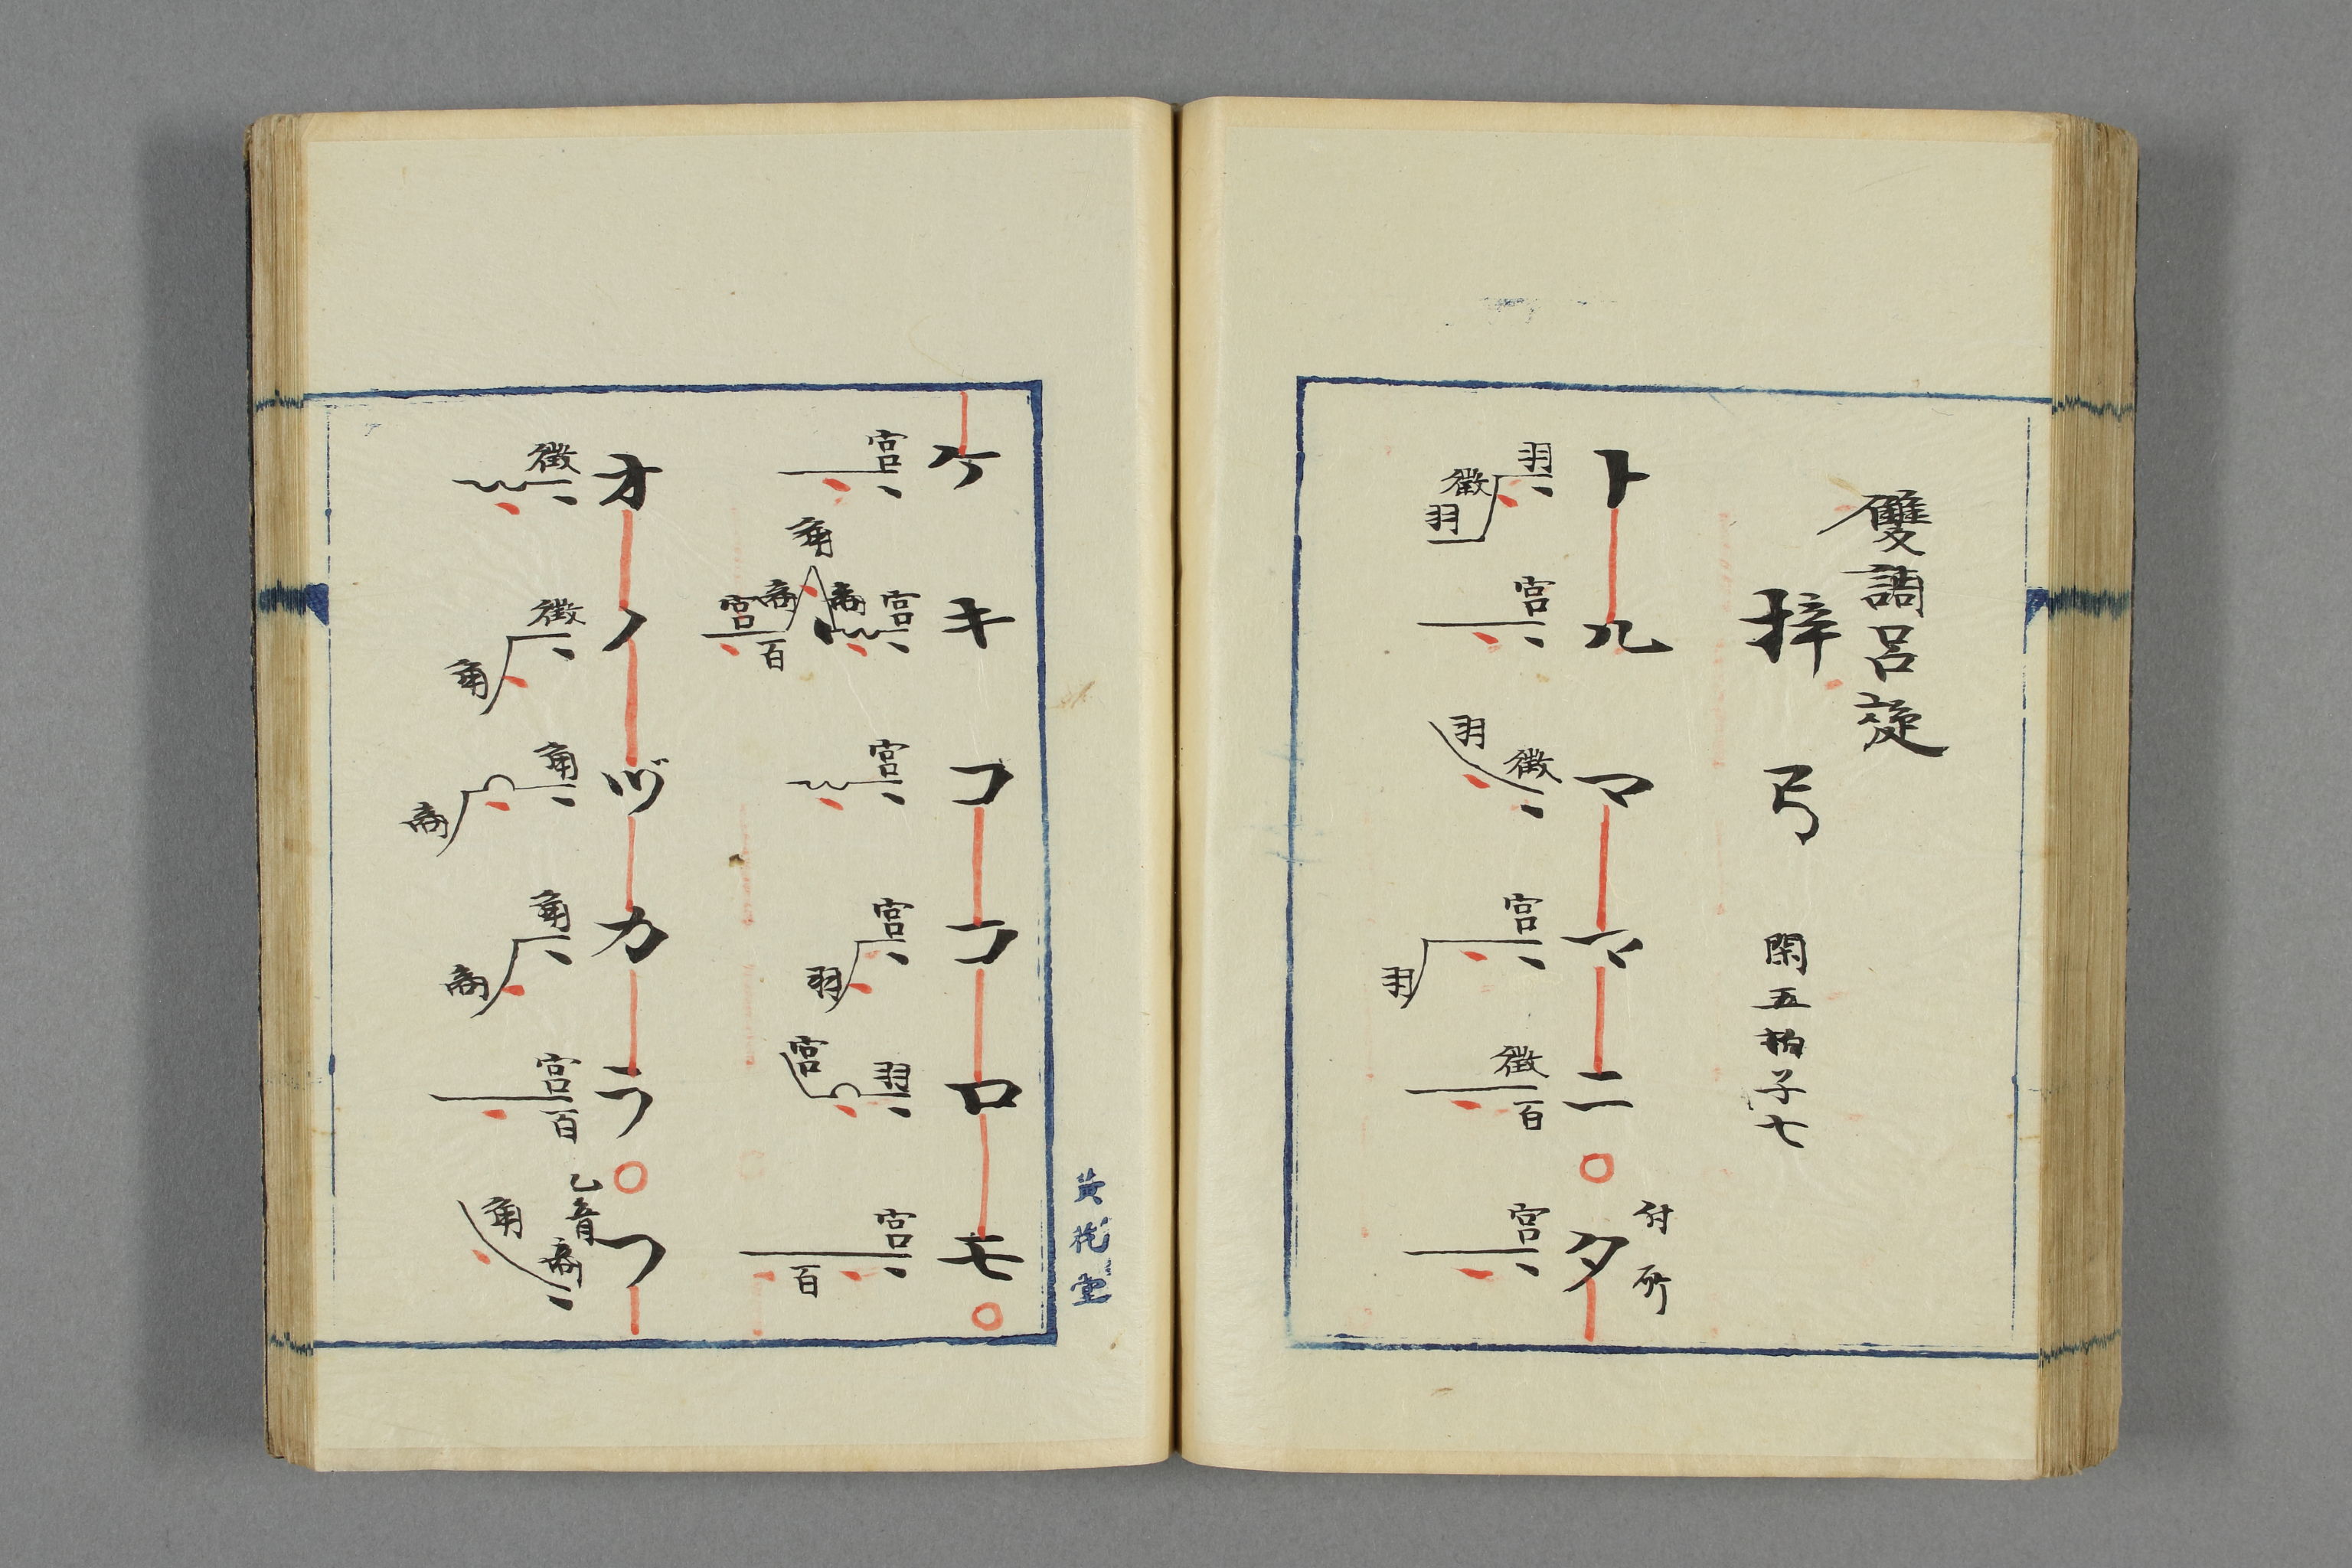 雙調呂旋
梓弓 閑五拍子七
トルママニ○タ
付所
羽徴羽 宮 徴羽 宮羽 徴百 宮
黄花堂
ケキココロモ○
宮 宮商角商宮百 宮 宮羽 羽宮 宮百
オノヅカラ○フ
乙音
徴 徴角 角商 角商 宮百 商角